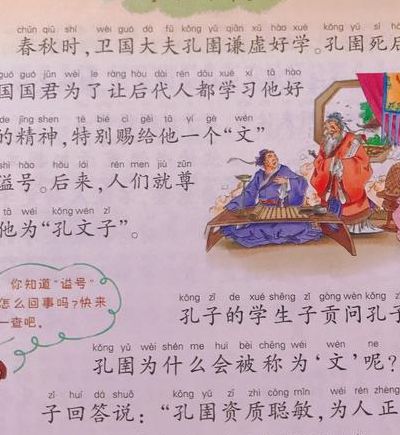 chūn qiū shí wèi guó dà fū kǒng yǔ qiān xū hào xué kǒng yǔ sǐ
春秋时,卫国大夫孔圉谦虚好学。孔圉死后
guó guó jūn wèi le ràng hòu dài rén dōu xué xí tā hào
国国君为了让后代人都学习他好
de jīng shen tè bié cì gěi tā yí gè wén
的精神,特别赐给他一个“文”
shì hào hòu lái rén men jiù zūn
谥号。后来,人们就尊
tā wéi kǒng wén zǐ
他为“孔文子”。
你知道“谥号”
怎么回事吗?快来
一查吧。
kǒng zǐ de xué shēng zǐ gòng wèn kǒng zǐ
孔子的学生子贡问孔子
kǒng yǔ wèi shén me huì bèi chēng wéi wén ne
孔圉为什么会被称为‘文’呢?
zǐ huí dá shuō kǒng yǔ zī zhì cōng mǐn wéi rén zhèng
子回答说:“孔圉资质聪敏,为人正